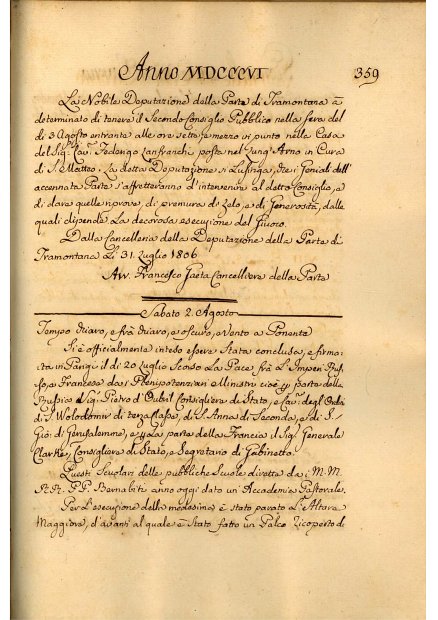 Anno MDCCCVI
359
La Nobile Deputazione della Parte di Tramontana à
determinato di tenere il Secondo Consiglio Pubblico nella sera del
di 3 Agosto entrante alle ore sette, e mezzo in punto nella Casa
del Sig. Cav. Federigo Lanfranchi posta nel Lung'Arno in Cura
di S. Matteo. La detta Deputazione si Lusinga, che i Geniali dell'
accennata Parte s'affretteranno d'intervenire al detto Consiglio, e
di dare quelle riprove, di premura di Zelo, e di Generosità, dalle
quali dipende La decorosa esecuzione del Giuoco.
Dalla Cancelleria della Deputazione della Parte di
Tramontana Li 31. Luglio 1806
Avv. Francesco Gaeta Cancelliere della Parte
Sabato 2. Agosto
Tempo chiaro, e frà chiaro, e oscuro, e Vento a Ponente
Si è officialmente inteso essere Stata conclusa, e firma-
ta in Parigi il di 20 Luglio Scorso La Pace frà L'Imperi Rus-
so, e Francese da i Plenipotenziari e Ministri cioè p parte della
Russia il Sig. Pietro d'Oubril Consigliere di Stato, e Cav. degl'Ordini
di S. Wolodomir di terza classe, di S. Anna di Seconda, e di S.
Gio: di Gerusalemme, e p La parte della Francia il Sig. Generale
Clarke, Consigliere di Stato, e Segretario di Gabinetto.
Questi Scolari delle pubbliche Scuole dirette da i M. M.
R. R. P. P. Bernabiti anno oggi dato un'Accademia Pastorale.
Per L'esecuzione della medesima è stato parato L'Altare
Maggiore, d'avanti al quale è Stato fatto un Palco ricoperto di